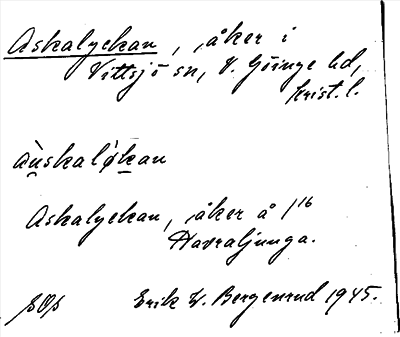 Askalyckan, åker i
Vittsjö sn, V. Göinge hd,
Krist. l.
Askalyckan, åker å 1/16
Havraljunga.
Erik W. Bergenrud 1945.